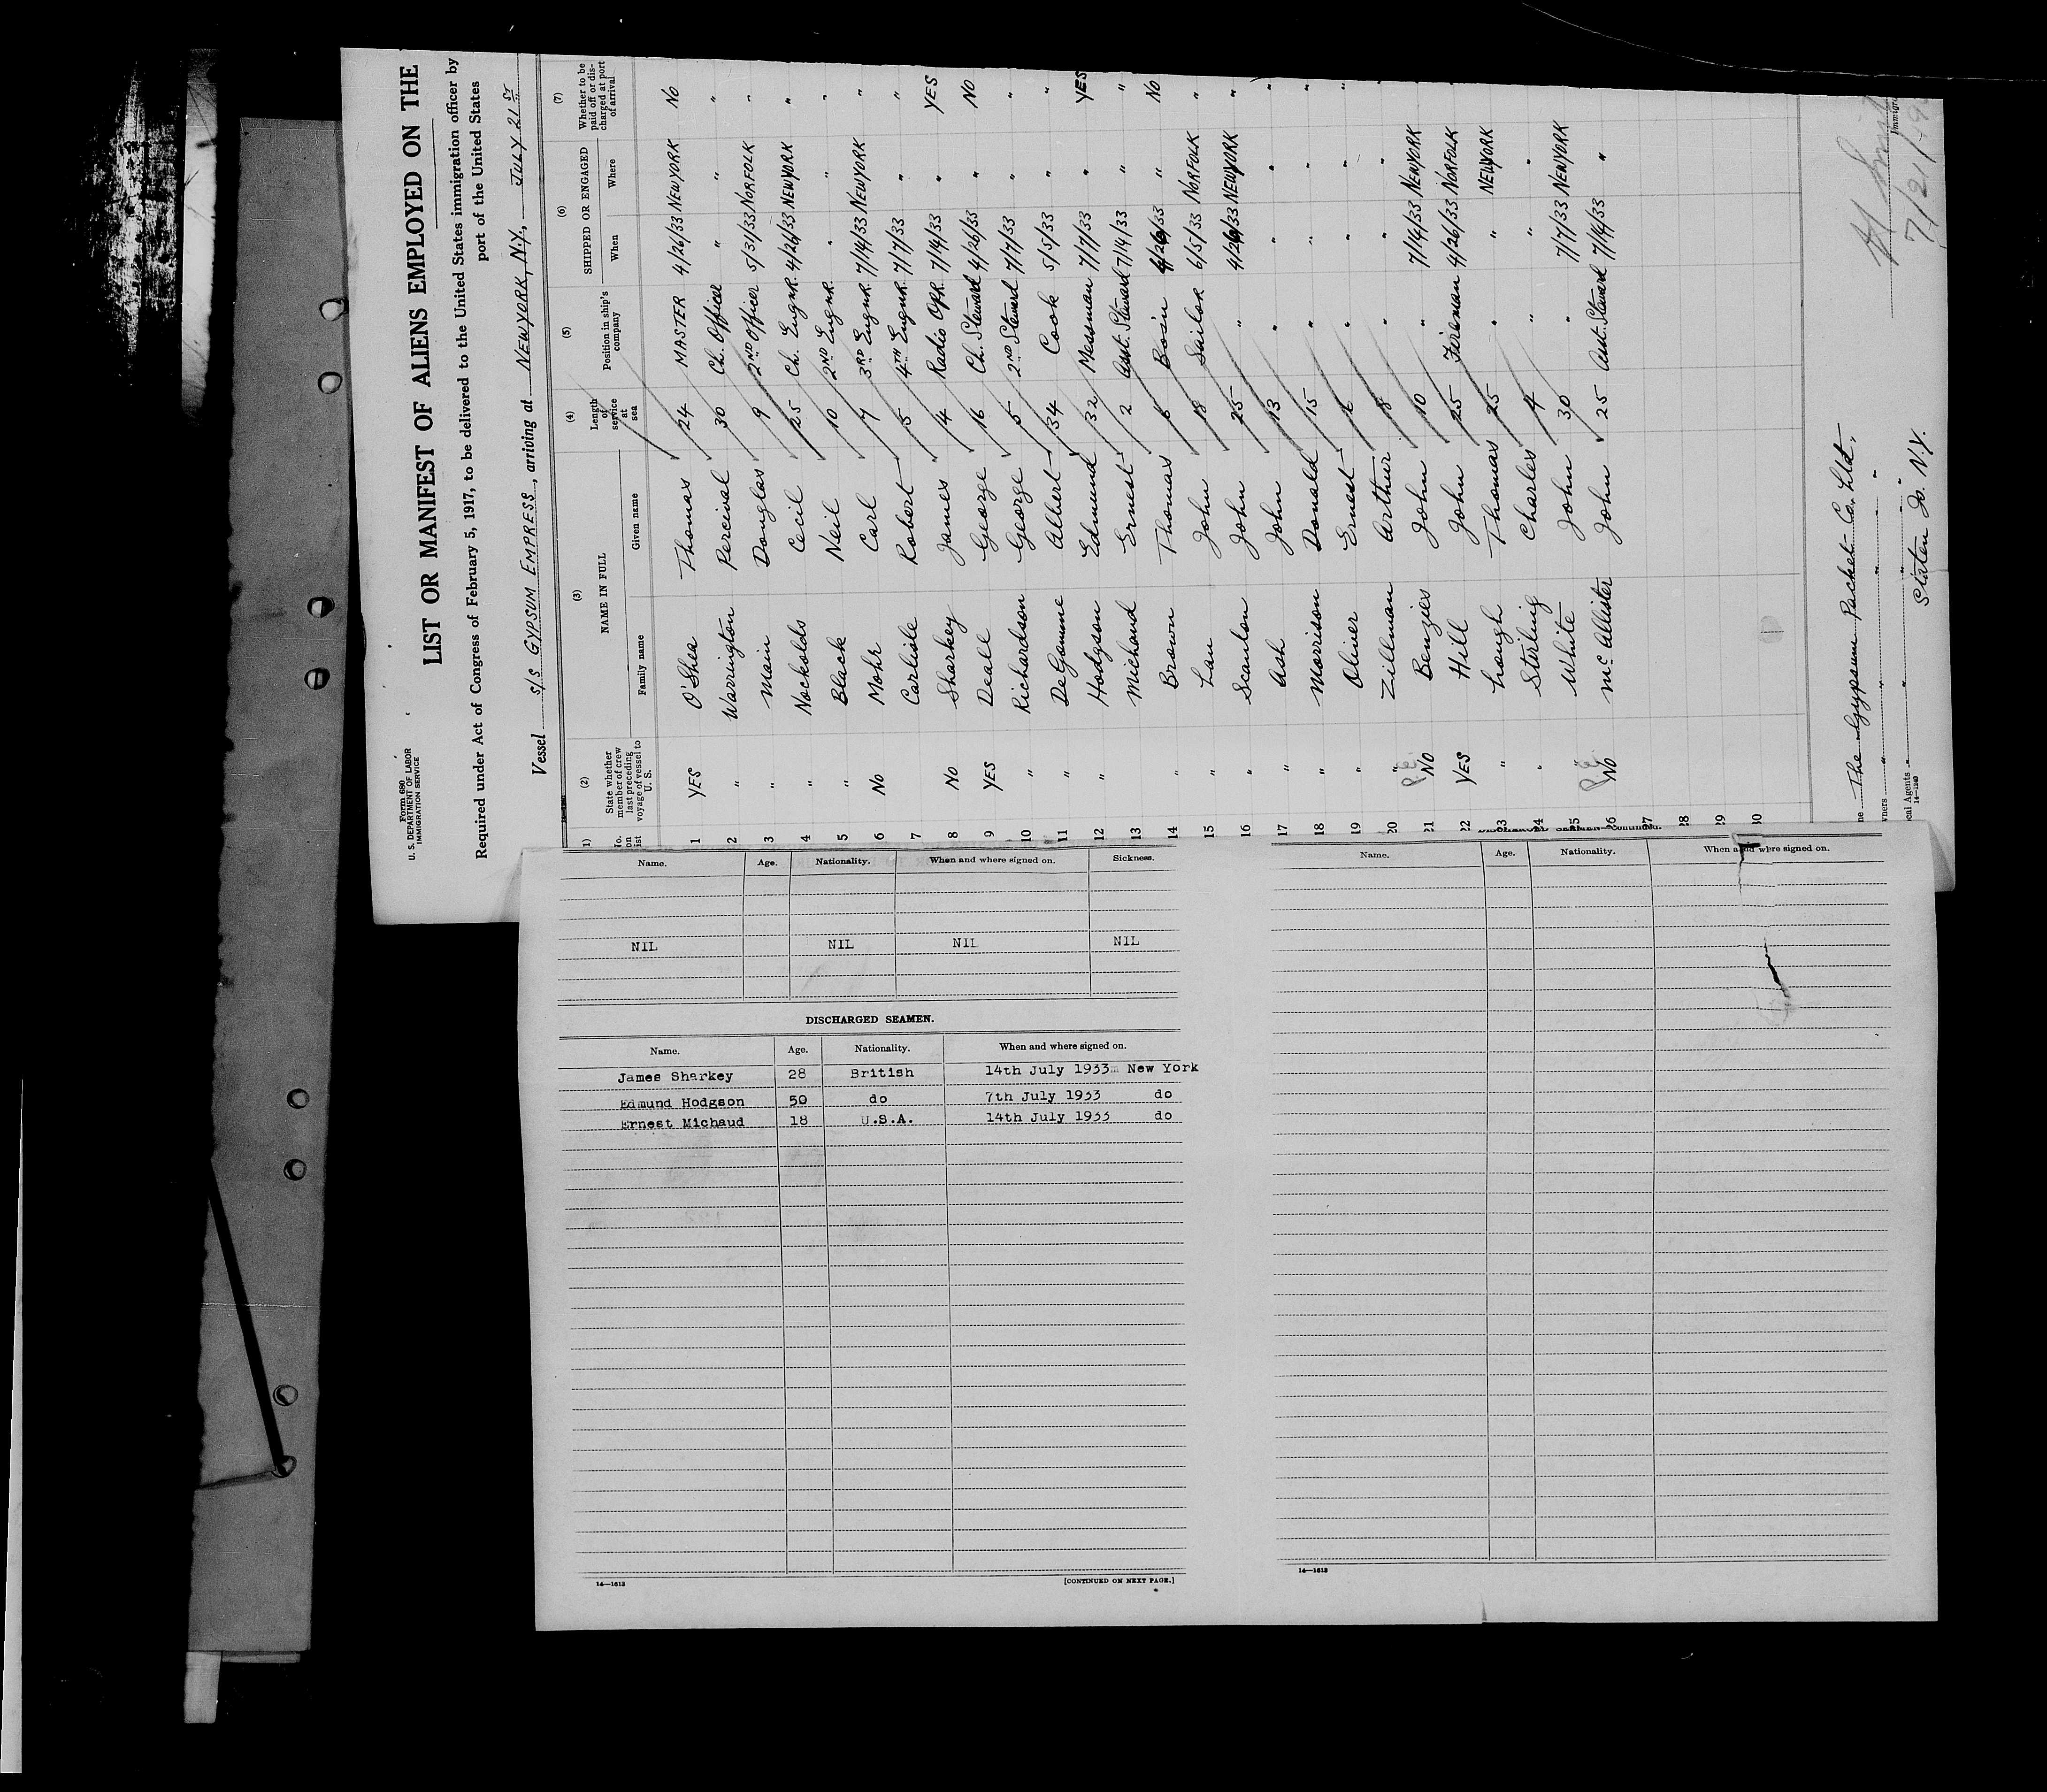 Form 680
U. S. DEPARTMENT OF LABOR
IMMIGRATION SERVICE
LIST OR MANIFEST OF ALIENS EMPLOYED ON THE
Required under Act of Congress of February 5, 1917, to be delivered to the United States immigration officer by
port of the United States
Vessel S/S GYPSUM EMPRESS, arriving at NEW YORK, N.Y., JULY 21 ST
(2) (3) (4) (5) (6) (7)
State whether member of crew last preceding voyage of vessel to U. S. NAME IN FULL Length of service at sea Position in ship's company SHIPPED OR ENGAGED Whether to be paid off or discharged at port of arrival
Family name Given name When Where
1 YES O'Shea Thomas 24 MASTER 4/26/33 NEW YORK NO
2 " Warrington Percival 30 Ch. Officer " " "
3 " Main Douglas 9 2ND Officer 5/31/33 NORFOLK "
4 " Nockolds Cecil 25 Ch. Engnr. 4/26/33 NEW YORK "
5 " Black Neil 10 2ND Engnr. " " "
6 NO Mohr Carl 7 3RD Engnr. 7/14/33 NEW YORK "
7 Carlisle Robert 5 4TH Engnr. 7/7/33 " "
8 NO Sharkey James 4 Radio Opr. 7/14/33 " YES
9 YES Deall George 16 Ch. Steward 4/26/33 " NO
10 " Richardson George 5 2ND Steward 7/7/33 " "
11 " DeGomme Albert 34 Cook 5/5/33 " "
12 " Hodgson Edmund 32 Messman 7/7/33 " YES
13 Michaud Ernest 2 Asst. Steward 7/14/33 " "
14 " Brown Thomas 6 Bosin 4/26/33 " NO
15 " Lau John 18 Sailor 6/5/33 NORFOLK "
16 " Scanlon John 25 " 4/26/33 NEW YORK "
17 " Ash John 13 " " " "
18 " Morrison Donald 15 " " " "
19 " Oliver Ernest " " " "
20 " Zillman Arthur 18 " " "
21 NO Benzies John 10 " 7/14/33 NEW YORK
22 YES Hill John 25 Fireman 4/26/33 NORFOLK
23 " Lough Thomas 25 " " NEW YORK
24 " Sterling Charles 4 " " "
25 White John 30 " 7/7/33 NEW YORK
26 NO McAllister John 25 Asst. Steward 7/14/33 "
27
28
29
30
The Gypsum Packet Co. Ltd.
" " " "
Local Agents " " "
Staten Is. N.Y.
14—1240
7/21/
Name. Age. Nationality. When and where signed on. Sickness.
NIL NIL NIL NIL
DISCHARGED SEAMEN.
Name. Age. Nationality. When and where signed on.
James Sharkey 28 British 14th July 1933 New York
Edmund Hodgson 50 do 7th July 1933 do
Ernest Michaud 18 U.S.A. 14th July 1933 do
14—1613 [CONTINUED ON NEXT PAGE.]
DISCHARGED SEAMEN—Continued.
Name. Age. Nationality. When and where signed on.
14—1613